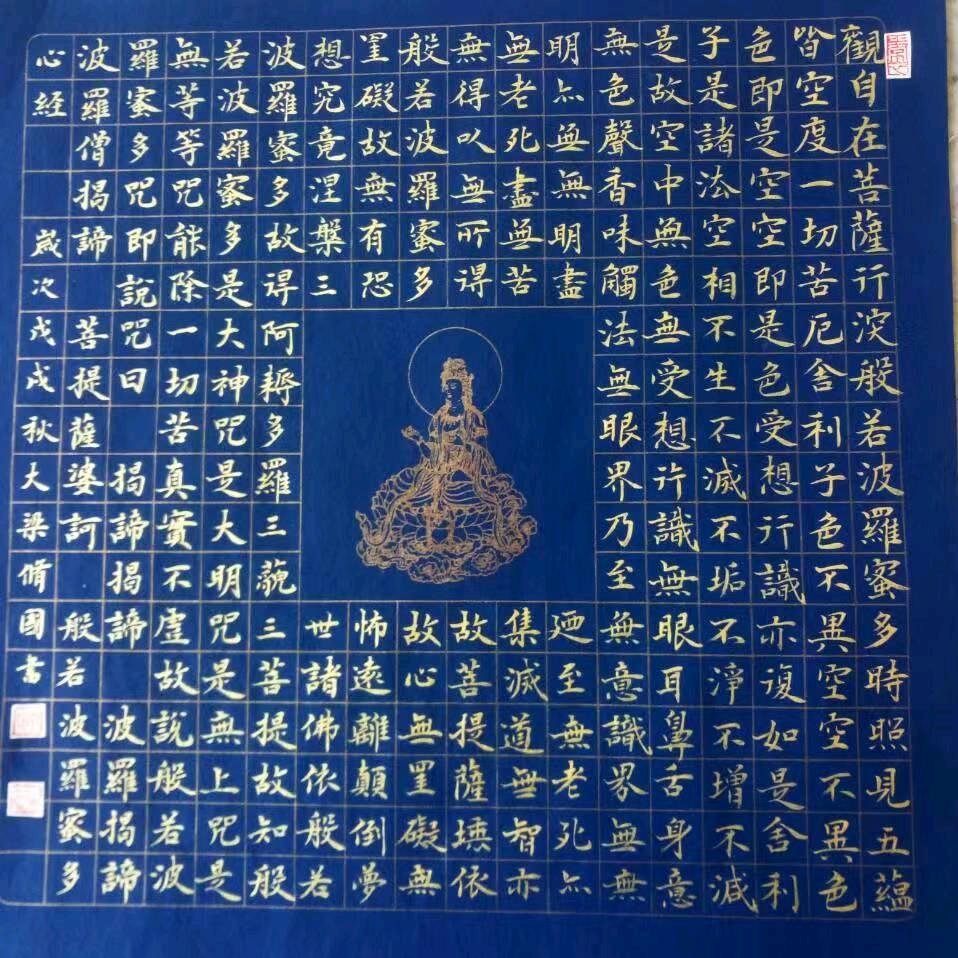 觀自在菩薩行深般若波羅蜜多時照見五蘊
皆空度一切苦厄舍利子色不異空空不異色
色即是空空即是色受想行識亦復如是舍利
子是諸法空相不生不滅不垢不淨不增不減
是故空中無色無受想行識無眼耳鼻舌身意
無色聲香味觸法無眼界乃至無意識界無無
明亦無無明盡廼至無老死亦
無老死盡無苦集滅道無智亦
無得以無所得故菩提薩埵依
般若波羅蜜多故心無罣礙無
罣礙故無有恐怖遠離顛倒夢
想究竟涅槃三世諸佛依般若
波羅蜜多故得阿耨多羅三藐三菩提故知般
若波羅蜜多是大神咒是大明咒是無上咒是
無等等咒能除一切苦真實不虛故說般若波
羅蜜多咒即說咒曰 揭諦揭諦 波羅揭諦
波羅僧揭諦 菩提薩婆訶 般若波羅蜜多
心經 歲次戊戌秋大梁脩國書